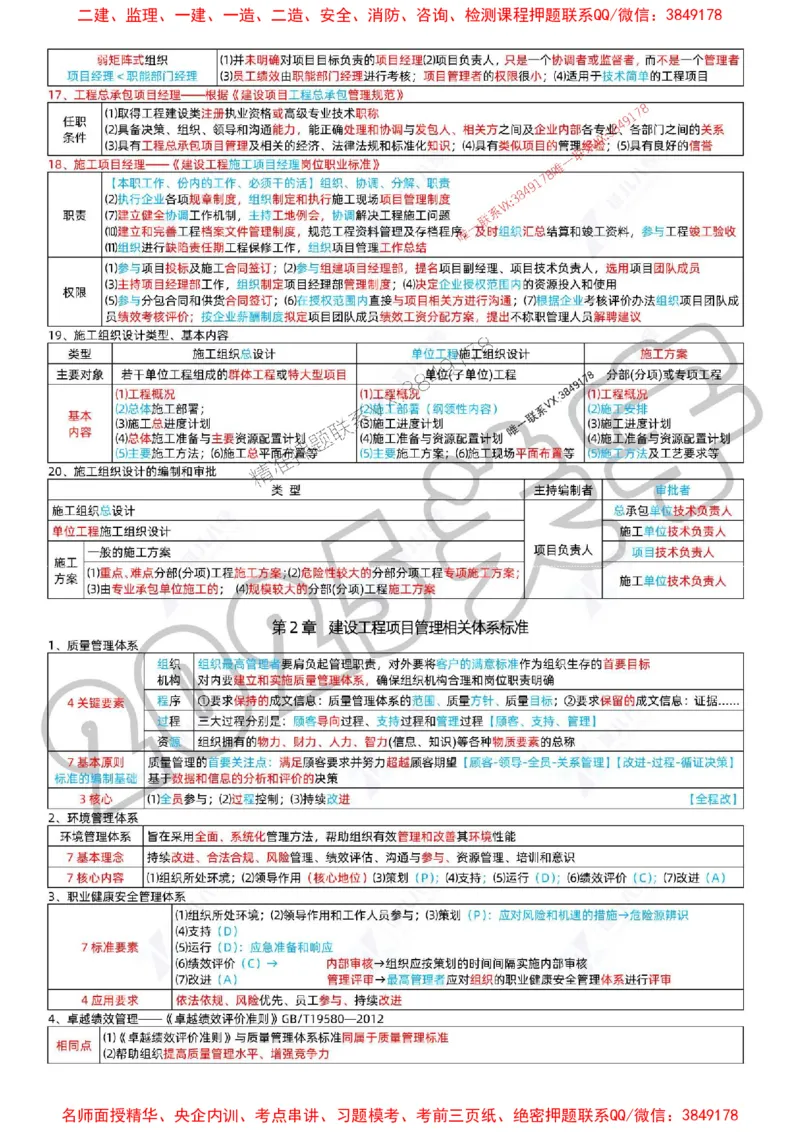 二建、监理、一建、一造、二造、安全、消防、咨询、检测课程押题联系QQ/微信：3849178
弱矩阵式组织
项目经理＜职能部门经理
(1)并未明确对项目目标负责的项目经理(2)项目负责人，只是一个协调者或监督者，而不是一个管理者
(3)员工绩效由职能部门经理进行考核；项目管理者的权限很小；(4)适用于技术简单的工程项目
17、工程总承包项目经理——根据《建设项目工程总承包管理规范》
任职
条件
(1)取得工程建设类注册执业资格或高级专业技术职称
(2)具备决策、组织、领导和沟通能力，能正确处理和协调与发包人、相关方之间及企业内部各专业、各部门之间的关系
(3)具有工程总承包项目管理及相关的经济、法律法规和标准化知识；(4)具有类似项目的管理经验；(5)具有良好的信誉
18、施工项目经理——《建设工程施工项目经理岗位职业标准》
职责
【本职工作、份内的工作、必须干的活】组织、协调、分解、职责
(2)执行企业各项规章制度，组织制定和执行施工现场项目管理制度
(7)建立健全协调工作机制，主持工地例会，协调解决工程施工问题
⑽建立和完善工程档案文件管理制度，规范工程资料管理及存档程序，及时组织汇总结算和竣工资料，参与工程竣工验收
⑾组织进行缺陷责任期工程保修工作，组织项目管理工作总结
权限
(1)参与项目投标及施工合同签订；(2)参与组建项目经理部，提名项目副经理、项目技术负责人，选用项目团队成员
(3)主持项目经理部工作，组织制定项目经理部管理制度；(4)决定企业授权范围内的资源投入和使用
(5)参与分包合同和供货合同签订；(6)在授权范围内直接与项目相关方进行沟通；(7)根据企业考核评价办法组织项目团队成
员绩效考核评价；按企业薪酬制度拟定项目团队成员绩效工资分配方案，提出不称职管理人员解聘建议
19、施工组织设计类型、基本内容
类型 施工组织总设计 单位工程施工组织设计 施工方案
主要对象 若干单位工程组成的群体工程或特大型项目 单位(子单位)工程 分部(分项)或专项工程
基本
内容
(1)工程概况
(2)总体施工部署；
(3)施工总进度计划
(4)总体施工准备与主要资源配置计划
(5)主要施工方法；(6)施工总平面布置等
(1)工程概况
(2)施工部署（纲领性内容）
(3)施工进度计划
(4)施工准备与资源配置计划
(5)主要施工方案；(6)施工现场平面布置等
(1)工程概况
(2)施工安排
(3)施工进度计划
(4)施工准备与资源配置计划
(5)施工方法及工艺要求等
20、施工组织设计的编制和审批
类 型 主持编制者 审批者
施工组织总设计 总承包单位技术负责人
单位工程施工组织设计 施工单位技术负责人
项目负责人
施工
方案
一般的施工方案 项目技术负责人
(1)重点、难点分部(分项)工程施工方案；(2)危险性较大的分部分项工程专项施工方案；
(3)由专业承包单位施工的； (4)规模较大的分部(分项)工程施工方案
施工单位技术负责人
第 2 章 建设工程项目管理相关体系标准
1、质量管理体系
4 关键要素
组织
机构
组织最高管理者要肩负起管理职责，对外要将客户的满意标准作为组织生存的首要目标
对内要建立和实施质量管理体系，确保组织机构合理和岗位职责明确
程序 ①要求保持的成文信息：质量管理体系的范围、质量方针、质量目标；②要求保留的成文信息：证据……
过程 三大过程分别是：顾客导向过程、支持过程和管理过程【顾客、支持、管理】
资源 组织拥有的物力、财力、人力、智力(信息、知识)等各种物质要素的总称
7 基本原则
标准的编制基础
质量管理的首要关注点：满足顾客要求并努力超越顾客期望【顾客-领导-全员-关系管理】【改进-过程-循证决策】
基于数据和信息的分析和评价的决策
3 核心 (1)全员参与；(2)过程控制；(3)持续改进 【全程改】
2、环境管理体系
环境管理体系 旨在采用全面、系统化管理方法，帮助组织有效管理和改善其环境性能
7 基本理念 持续改进、合法合规、风险管理、绩效评估、沟通与参与、资源管理、培训和意识
7 核心内容 (1)组织所处环境；(2)领导作用（核心地位）(3)策划（P）；(4)支持；(5)运行（D）；(6)绩效评价（C）；(7)改进（A）
3、职业健康安全管理体系
7 标准要素
(1)组织所处环境；(2)领导作用和工作人员参与；(3)策划（P）：应对风险和机遇的措施→危险源辨识
(4)支持（D）
(5)运行（D）：应急准备和响应
(6)绩效评价（C）→ 内部审核→组织应按策划的时间间隔实施内部审核
(7)改进（A） 管理评审→最高管理者应对组织的职业健康安全管理体系进行评审
4 应用要求 依法依规、风险优先、员工参与、持续改进
4、卓越绩效管理——《卓越绩效评价准则》GB/T19580—2012
相同点
(1)《卓越绩效评价准则》与质量管理体系标准同属于质量管理标准
(2)帮助组织提高质量管理水平、增强竞争力
名师面授精华、央企内训、考点串讲、习题模考、考前三页纸、绝密押题联系QQ/微信：3849178